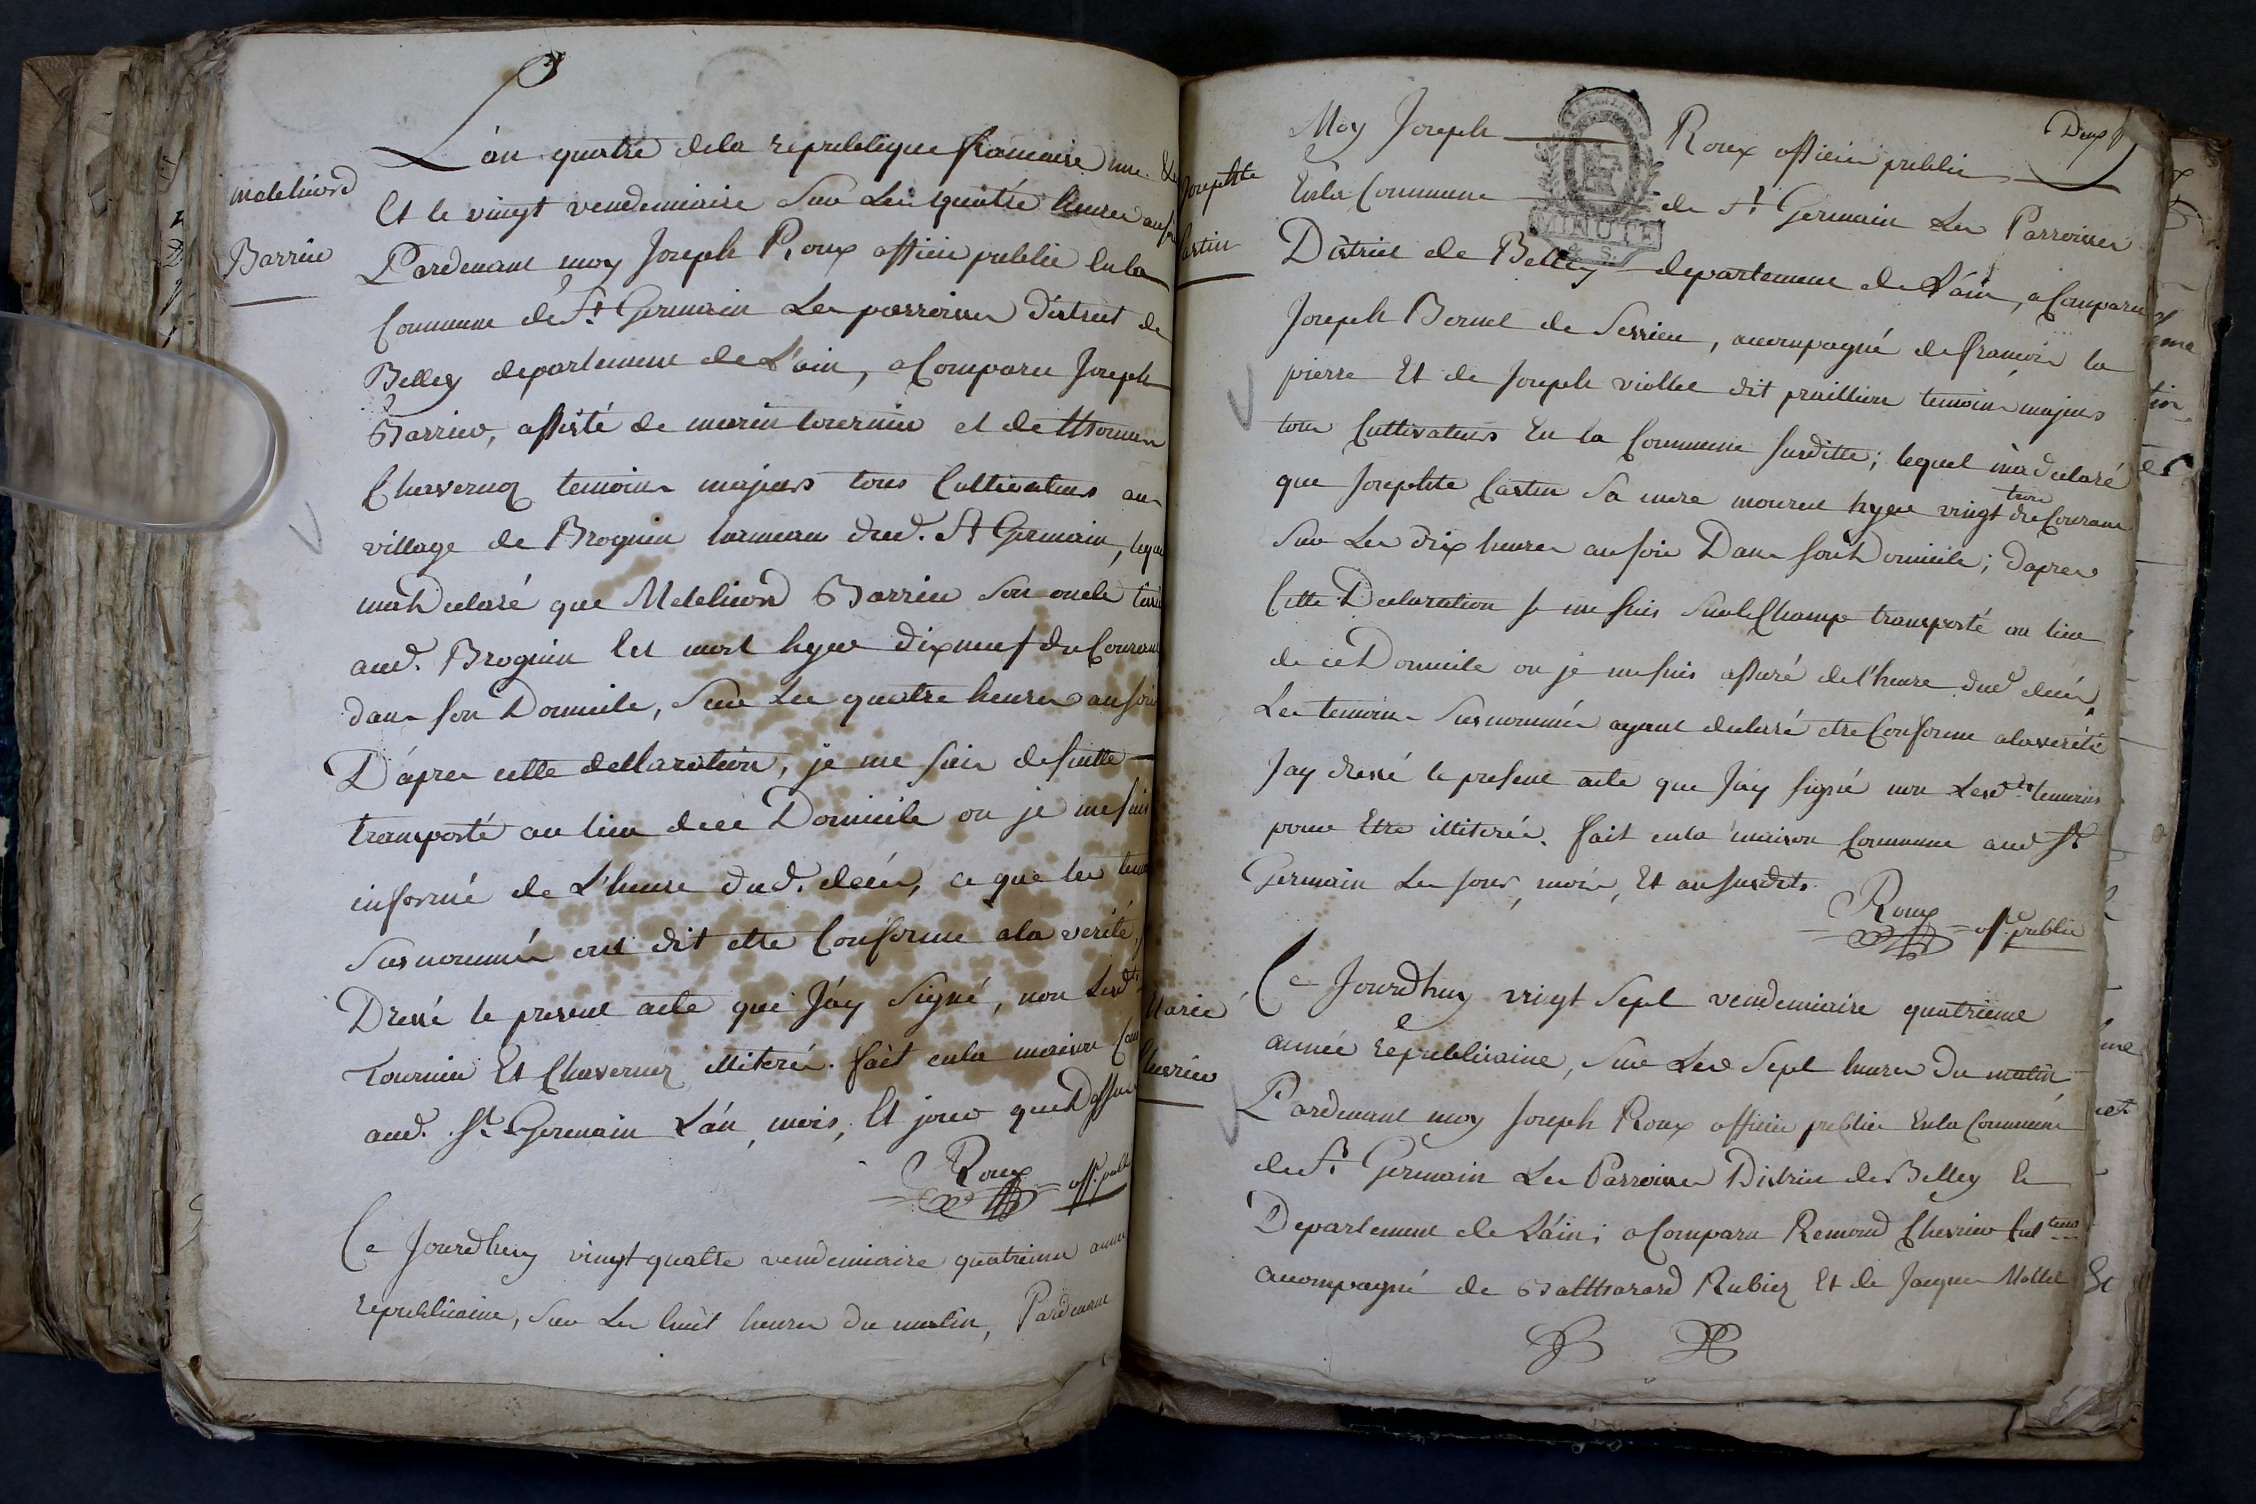 L'an quatre dela republique francaise une &
Et le vingt vendemiaire Sur Les quatre heures au soir
Melchiord
Barrin
Pardevant moy Joseph Roux officier public En la
Commune de St Germain Les parroisses district de
Belley departement de L'ain, a Comparu Joseph
Barrin, assisté de marin tournier et de thomas
Chavernoz temoins majeurs tous Cultivateurs au
village de Brognin hameau dud. St Germain, lequel
m'a Declaré que Melchiord Barrin Son oncle
aud. Brognin Est mort hyer dixneuf du Courant
dans son Domicile, Sur Les quatre heures au soir
D'apres cette dellaration, je me suis desuitte
transporté au lieu dece Domicile ou je me suis
informé de L'heure dud. decés, ce que les
Susnommés ont dit etre Conforme ala verité,
Dressé le present acte que J'ay Signé, non Lesdts
Tournier Et Chavernoz illiterés. fait enla maison
aud. St Germain L'an, mois, Et jour que Dessus
Roux off. public
Ce Jourdhuy vingt quatre vendemiaire quatrieme année
republicaine, Sur Les huit heures du matin, Pardevant
Deux
Josephte
Castin
Moy Joseph Roux officier public
MINUTE
Enla Commune de St Germain Les Parroisses
District de Belley departement de L'ain, a Comparu
Joseph Bornet de Serrieu, accompagné de francois la
pierre Et de Joseph viollet dit praillion temoins majeurs
tous Cultivateurs En la Commune Susditte; lequel m'a declaré
que Josephte Castin Sa mere mourut hyer vingt trois du Courant
Sur Les dix heures au soir Dans son Domicile; d'apres
Cette Declaration Je me suis Sur le Champ transporté au lieu
de ce Domicile ou je me suis assuré de l'heure dud decés
Les temoins Susnommés ayant declaré etre Conforme ala verité
Jay dressé le present acte que J'ay signé non Lesdts temoins
pour Etre illiterés. fait enla maison Commune aud St
Germain Les jour, mois, Et an Susdits.
Roux off. public
Marie
Chevrier
Ce Jourdhuy vingt Sept vendemiaire quatrieme
année republicaine, Sur Les Sept heures du matin
Pardevant moy Joseph Roux officier public Enla Commune
de St Germain Les Parroisses District de Belley
Departement de L'ain; a Comparu Remond Chevrier
accompagné de Balthazard Rubiez Et de Jacques Mollet